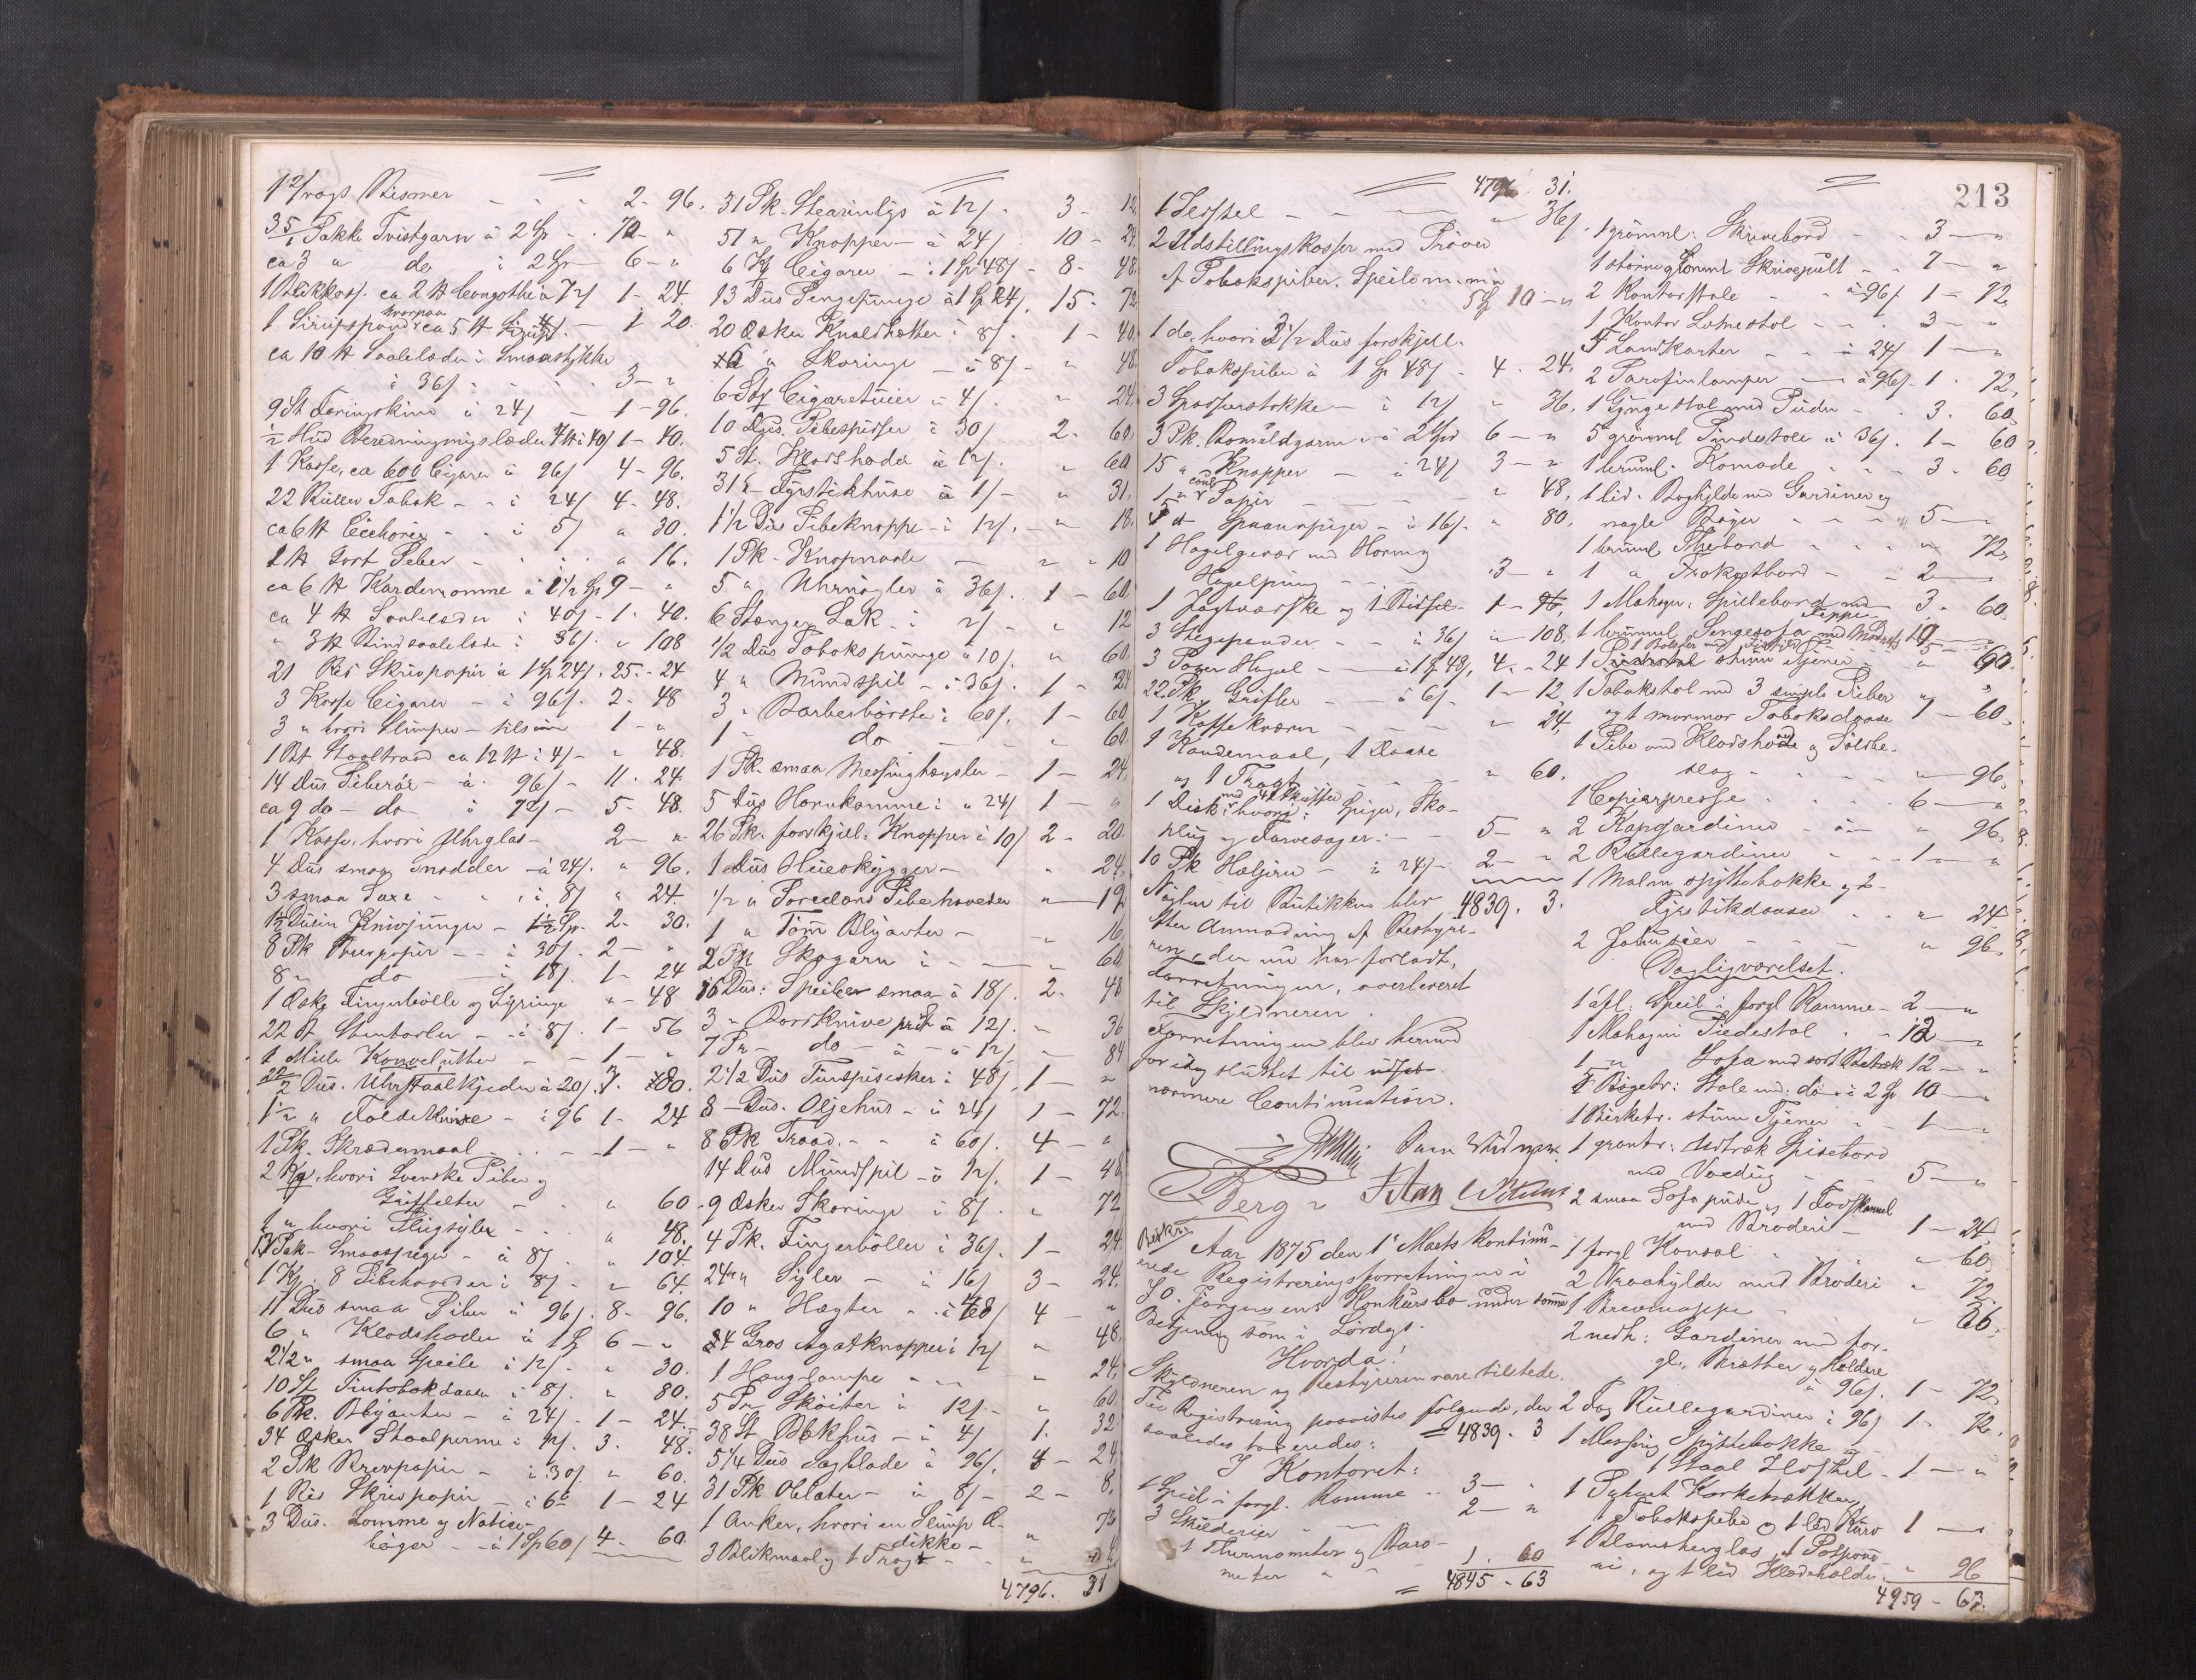 1 Bismer - - - 2 - 96.
35/1 Pakke Tvistgarn à 2 Sp - - 70 - "
ca 3 " do à 2 Sp - 6 - "
1 Blikkass. ca 2 ℔ Congothe à 72 ʃ 1 - 24.
1 Sirupsspand hvorpaa ca 5 ℔ Sirup - 1 - 20.
ca 10 ℔ Saalelæder i Smaastykker
à 36 ʃ - - - 3 - "
9 St Faareskind à 24 ʃ - 1 - 96.
½ Hud Beredningslæder 4 ℔ à 40 ʃ 1 - 40.
1 Kasse, ca 600 Cigarer à 96 ʃ 4 - 96.
22 Ruller Tobak - - à 24 ʃ 4 - 48.
ca 6 ℔ Cichorie - - à 5 ʃ " 30.
1 ℔ sort Peber - - - " 16.
ca 6 ℔ Kardemomme à 1½ Sp 9 - "
ca 4 ℔ Saalelæder à 40 ʃ - 1 - 40.
" 3 ℔ Bindsaalelæder à 36 ʃ - " 108
21 Ris Skrivpapir à 1 Sp 24 ʃ. 25 - 24
3 Kasse Cigarer - à 96 ʃ. 2 - 48
3 " hvori Slumper - tilsam 1 - "
1 Bt Staaltraad ca 12 ℔ à 4 ʃ - " 48.
14 Dus Piberør - à 96 ʃ - 11 - 24.
ca 9 do - do - à 72 ʃ - 5 - 48.
1 Kasse, hvori Uhrglas - 2 - "
4 Dus smaa - à 24 ʃ. " 96.
3 smaa Saxe - - à 8 ʃ " 24
1½ Dusin Knivpunge - 1½ Sp - 2 - 30.
8 Pk Brevpapir - - à 30 ʃ - 2 - "
8 " do - à 18 ʃ 1 - 24
1 Æske Fingerbølle og Syringe " - 48
22 St Stentavler - - à 8 ʃ. 1 - 56
1 Mille Konvolutter - - 1 - "
Dus. Uhrstaalkjeder à 20 ʃ. 1 - 80.
1½ " Foldeknive - à 96 1 - 24
1 Pk. Skrædermaal - - - 1 - "
2 Kg, hvori Svenske Piber og
" 60
1 " hvori Plugsyler - - " 48.
13 Pak - Smaaspiger - à 8 ʃ " 104.
1 Kp. 8 Pibehoveder à 8 ʃ - " 64.
11 Dus smaa Piber à 96 ʃ. 8 - 96.
6 " Klædshader à 1 Sp 6 - "
2½ " smaa Speile à 12 ʃ - " 30.
10 St Tintobakdaaser à 8 ʃ. " 80.
6 Pk. Blyanter - à 24 ʃ - 1 - 24.
34 Æsker Staalpenne à 12 ʃ. 3 - 48.
2 Pk Brevpapir - à 30 ʃ " 60.
1 Ris Skrivpapir - - 1 - 24
3 Dus. Lomme og Notice-
bøger - - à 1 Sp 60 ʃ 4 - 60.
31 Pk. Stearinlys à 12 ʃ - 3 - 12
51 " Knopper - à 24 ʃ 10 - 24.
6 Kg Cigarer - à 1 Sp 48 ʃ - 8 - 48
13 Dus Pengepunge à 1 Sp 24 ʃ. 15 - 72
20 Æsker Knaldhætter à 8 ʃ. 1 - 40.
6 " Skoringe - à 8 ʃ - " 48.
6 Stk Cigaretuier à 4 ʃ. " 24.
10 Dus. Pibespidser à 30 ʃ 2 - 60
5 St. Klædshader à 12 ʃ. " 60
31 St Fyrstikhuse à 1 ʃ - " 31.
1½ Dus Pibeknoppe - à 12 ʃ - " 18.
1 Pk - Knopnaale - " " 10
5 " Uhrnøgler à 36 ʃ. 1 - 60
6 Stænger Lak - à 2 ʃ - " 12
½ Dus Tobakspunge à 10 ʃ. " 60
4 " Mundspil - à 36 ʃ. 1 - 24
3 " Barberbørster à 60 ʃ. 1 - 60
1 " do - - - " 60
1 Pk. smaa Messinghængsler - 1 - 24.
5 Dus Hornkamme à " 24 ʃ 1 - "
26 Pk. forskjel. Knopper à 10 ʃ 2 - 20
1 Dus Hueskygger - " 24.
½ " Porcelæns Pibehoveder " - 12
1 " Tøm Blyanter - " 16
2 Pk Skogarn à - - - " 60
16 Dus: Speiler smaa à 18 ʃ. 2. 48
3 " Bordknive à 12 ʃ. " 36
7 Pr - do - à - 12 ʃ - " 84
2½ Dus Tinspiseskeer à 48 ʃ. 1 - "
8 - Dus. Oljehus - à 24 ʃ 1 - 72.
8 Pk Traad. - - à 60 ʃ. 4 - "
14 Dus Mundspil - à 12 ʃ. 1 - 48
9 Æsker Skoringe à 8 ʃ. " 72
4 Pk. Fingerbøller à 36 ʃ. 1 - 24
24 " Syler - à 16 ʃ 3 - 24.
10 " Hægter - - à 48 ʃ 4 "
4 Gros Agatknapper à 12 ʃ " 48.
1 Hænglampe - - " 24,
5 Pr Skøiter à 12 ʃ - " 60
38 St Blækhus - à 4 ʃ 1 - 32
5¼ Dus Sagblade à 96 ʃ. 4 - 24
31 Pk Oblater - à 8 ʃ - 2 - 8.
1 Anker, hvori en Slump Æ-
dikke - " 72
3 Blikmaal og 1 Tragt - -
4796. 31
4796. 31.
213
1 Terstel - - - " 36 ʃ.
2 Udstillingskasser med Prøver
af Tobakspiber. Speile m. m. à
5 Sp 10 - "
1 do, hvori 3½ Dus forskjell.
Tobakspiber à 1 Sp 48 ʃ - 4 - 24.
3 Spadserstokke - à 12 ʃ " 36.
3 Pk. Bomuldgarn - à 2 Sp 6 - "
15 " Knopper - à 24 ʃ 3 - "
1 " coul Papir - - - " 48.
5 ℔ Spaanspiger - à 16 ʃ. " 80.
1 Hagelgevær med Horn og
Hagelpung - - 3 - "
1 Jagtvædske og 1 Bidsel - 1 - 96.
3 Stegepander - - à 36 ʃ " - 108.
3 Poser Hagel - - à 1 Sp 48, 4 - 24
22 Pk Grifler - - à 6 ʃ - 1 - 12
1 Kaffekværn - - - " 24,
1 Kandemaal, 1 Daase
og 1 Tragt - - - " 60.
1 Disk med 42 Skuffer hvori: Spiger, Sko-
plug og Farvesager: - - 5 - "
10 Pk Hæljern - à 24 ʃ - 2 - "
4839. 3.
Nøglen til Butikken blev
efter Anmodning af Bestyre-
ren, der nu har forladt,
Forretningen, overleveret
til Skyldneren.
Forretningen blev herved
for idag sluttet til
nærmere Continuation.
Berg
Aar 1875 den 1ste Marts kontinu-
erede Registreringsforretningen i
J. O. Jørgensens Konkursbo under samme
Betjening som i Lørdags.
Hvorda!
Skyldneren og Bestyreren vare tilstede.
Til Registrering paavistes følgende, der
saaledes taxeredes: = 4839. 3
I Kontoret:
1 Speil i forgl. Ramme - - 3 - "
3 Skilderier - - - 2 - "
1 Thermometer og Baro-
meter " " 1 - 60
= 4845 - 63
1 grønml: Skrivebord - - 3 - "
1 større grønml Skrivepult - - 7 - "
2 Kontorstole - - à 96 ʃ 1 - 72,
1 Kontor Lænestol - - - 3 - "
4 Landkarter - - à 24 ʃ 1 - "
2 Parafinlamper - à 96 ʃ - 1 - 72,
1 Gyngestol med Puder - - 3. 60
5 grønml Pindestole à 36 ʃ. 1 - 60
1 brunml. Komode - - - 3 - 60
1 lid. Boghylde med Gardiner og
nogle Bøger - - - 5 - "
1 brunml Thebord - - - " 72,
1 " Frokostbord - - 2 - "
1 Mahogni Spillebord med Teppe 3 - 60
1 brunml Sengesofa med Madrats 10 -
1 stum Tjener " 60.
1 Tobakstol med 3 simple Piber
og 1 marmor Tobaksdaase 1 - 60
1 Pibe med Klædshode og Sølvbe-
slag - - - - - " 96,
1 Copierpresse - - - 6 - "
2 Kapgardiner - - - " 96,
2 Rullegardiner - - - 1 - "
1 Malm spyttebakke og 2
Fyrstikdaaser - - " 24
2 Jalousier - - - " 96
Dagligværelset.
1 afl: Speil i forgl Ramme - 2 - "
1 Mahogni Piedestal - - 12 - "
1 " Sofa med sort Betræk 12 - "
5 Bøgetr: Stole med do à 2 Sp 10 - "
1 Birketr. stum Tjener - - 1 - "
1 grantr: Udtræk Spisebord
med Voxdug - - 5 - "
2 smaa Sofapuder og 1 Fodskammel
med Broderi - 1 - 24.
1 forgl Konsol - " 60
2 Vraahylder med Broderi " 72.
1 Brevmappe - - " 36,
2 nedh: Gardiner med for-
gl. Brætter og Holdere
à 96 ʃ. 1 - 72,
2 Fag Rullegardiner à 96 ʃ 1 - 72.
1 Messing Spyttebakke og
1 Staal Ildstel - 1 - "
1 Patent Korketrækker,
1 Tobakspibe og 1 lid Kurv 1 - "
1 Blomsterglas, 1 Potpour-
ri, og 1 lid Klædeholder " 96
4959 - 63.